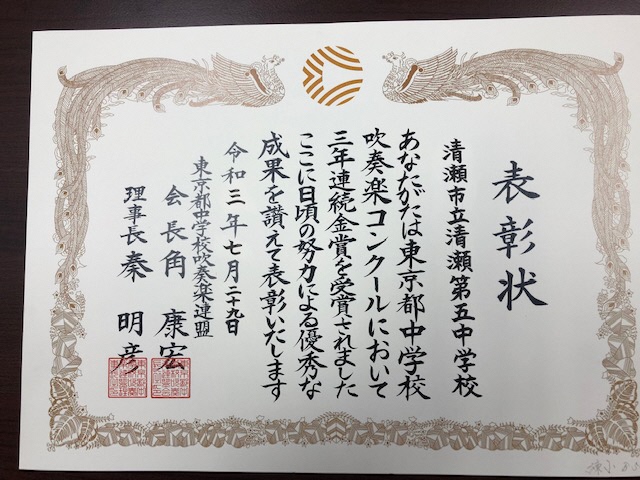 表彰状
清瀬市立清瀬第五中学校
あなたがたは東京都中学校
吹奏楽コンクールにおいて
三年連続金賞を受賞されました
ここに日頃の努力による優秀な
成果を讃えて表彰いたします
令和三年七月二十九日
東京都中学校吹奏楽連盟
会長角 康宏
理事長秦 明彦